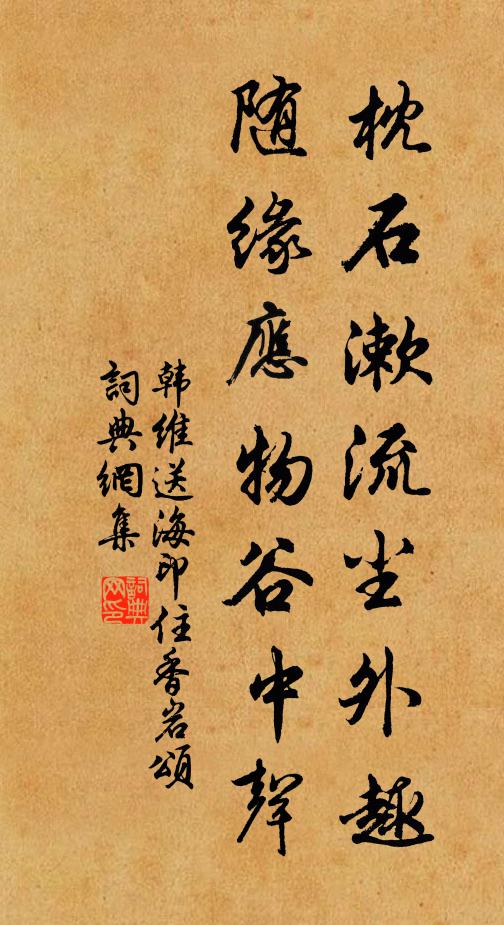 枕石漱流尘外趣
随缘應物谷中聲
韩维送海印住香岩頌
詞典網集
詞典网印